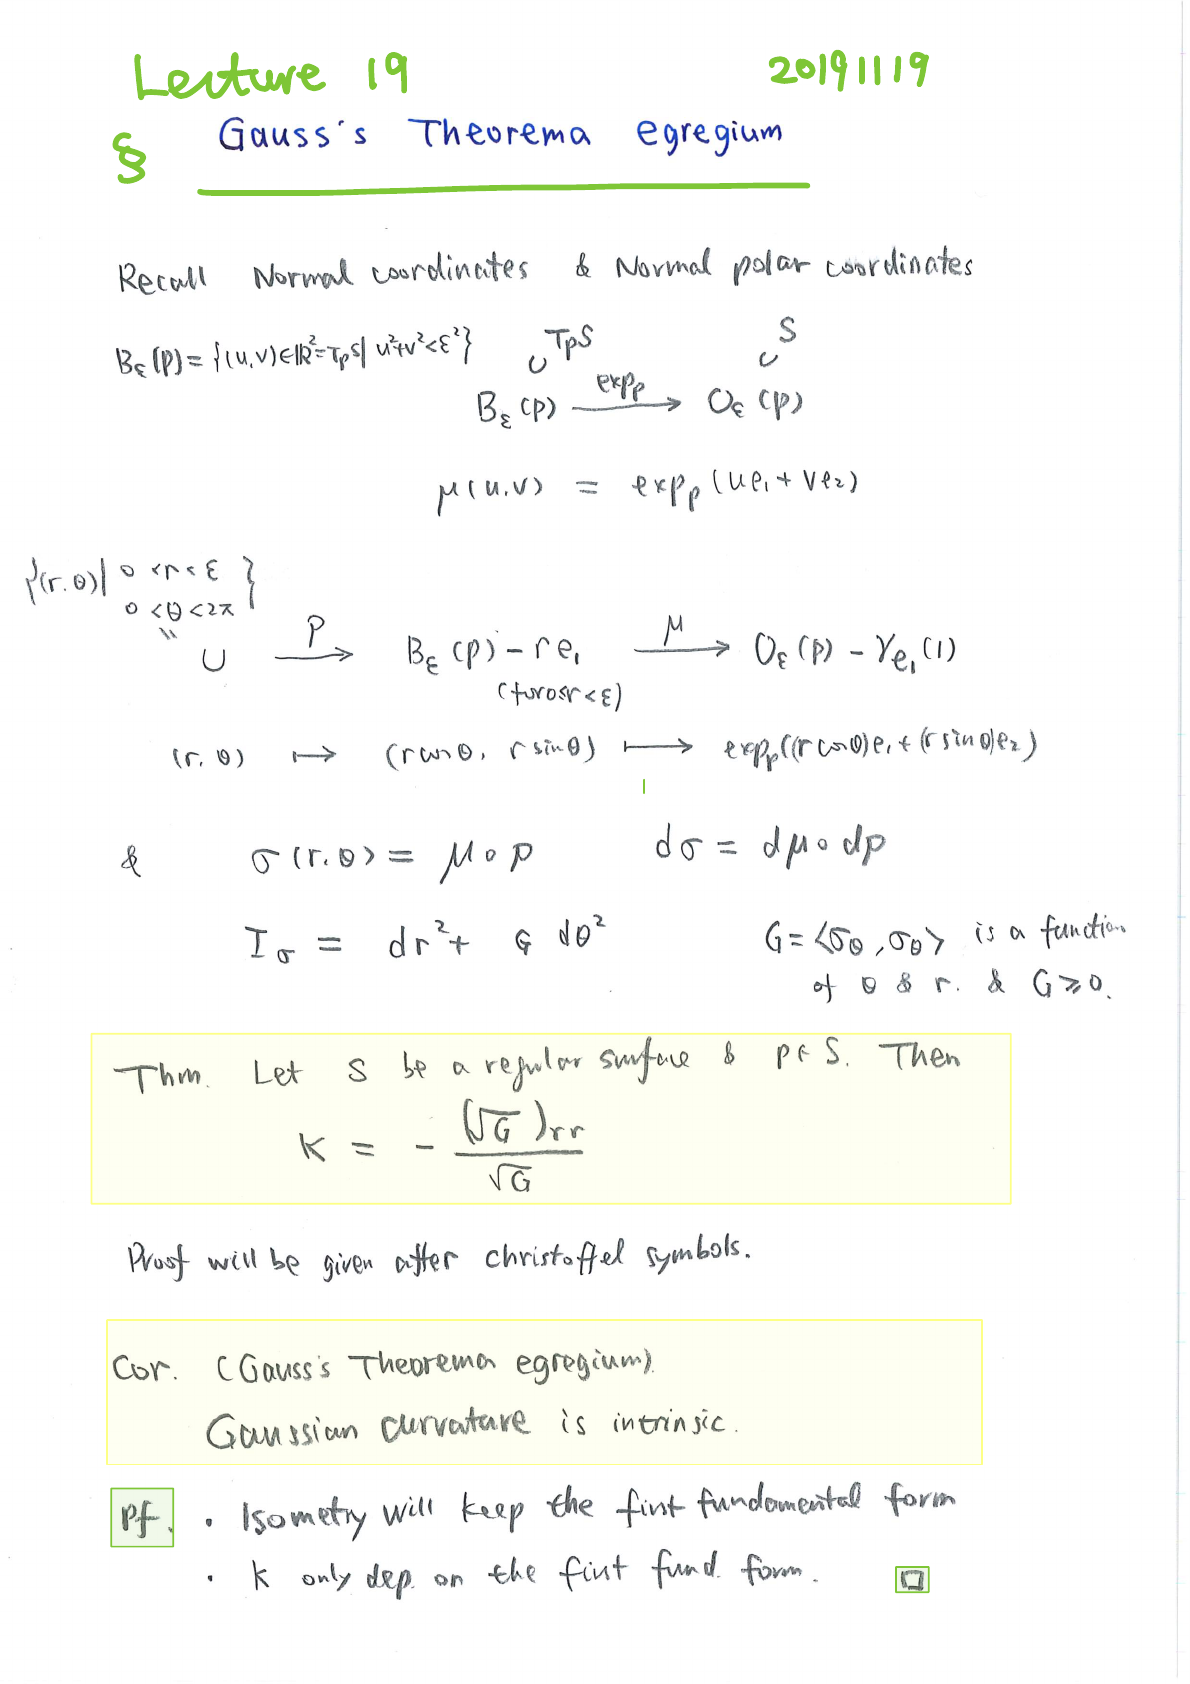 Lecture 19 20191119
§ Gauss's Theorema egregium
Recall Normal coordinates & Normal polar coordinates
Bε(p) = {(u,v)∈ℝ²=TpS | u²+v²<ε²} ∪ TpS ∪ S
Bε(p) —expp→ Oε(p)
μ(u,v) = expp(ue₁+ve₂)
{(r,θ)| 0<r<ε
0<θ<2π}
"
U —ρ→ Bε(p) - re₁ —μ→ Oε(p) - γe₁(1)
(for 0≤r<ε)
(r,θ) ↦ (r cosθ, r sinθ) ↦ expp((r cosθ)e₁+(r sinθ)e₂)
& σ(r,θ) = μ∘ρ dσ = dμ∘dρ
Iσ = dr² + G dθ² G=<σθ,σθ> is a function
of θ & r. & G≥0.
Thm. Let S be a regular surface & p∈S. Then
K = - (√G)rr / √G
Proof will be given after christoffel symbols.
Cor. (Gauss's Theorema egregium)
Gaussian curvature is intrinsic.
Pf. • Isometry will keep the first fundamental form
• K only dep. on the first fund. form. □